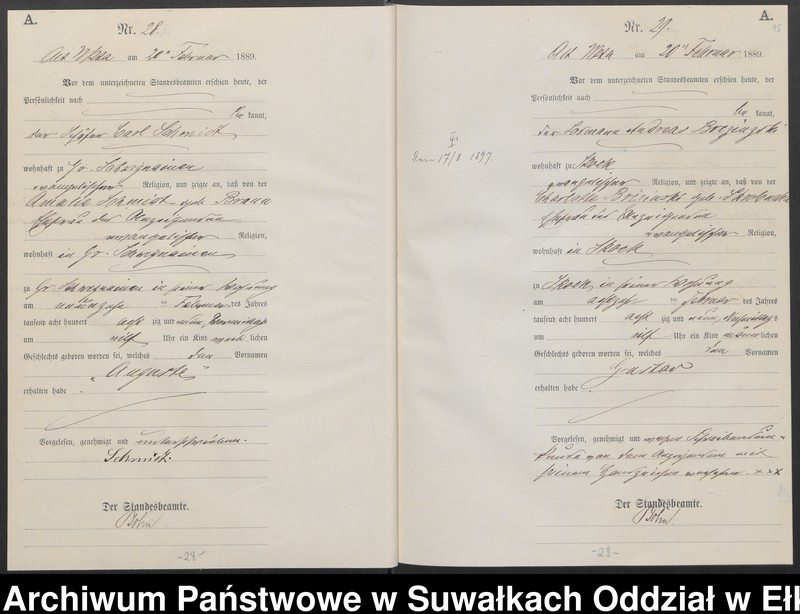 A.
Nr. 28.
am 20ten Februar 1889.
Vor dem unterzeichneten Standesbeamten erschien heute, der
Persönlichkeit nach
kannt,
der Carl Schmidt
wohnhaft zu Gr.
evangelischer Religion, und zeigte an, daß von der
Amalie Schmidt geb.
Ehefrau des Anzeigenden
evangelischer Religion,
wohnhaft in Gr.
zu Gr. in seiner Wohnung
am neunzehn ten Februar des Jahres
tausend acht hundert acht zig und neun, Vormittags
um elf Uhr ein Kind weib lichen
Geschlechts geboren worden sei, welches den Vornamen
„Auguste"
erhalten habe.
Vorgelesen, genehmigt und unterschrieben.
Schmidt.
Der Standesbeamte.
Bohn
-28-
A.
Nr. 29.
am 20ten Februar 1889.
Vor dem unterzeichneten Standesbeamten erschien heute, der
Persönlichkeit nach
kannt,
der Losmann Andreas
wohnhaft zu Skock
evangelischer Religion, und zeigte an, daß von der
Charlotte geb.
Ehefrau des Anzeigenden
evangelischer Religion,
wohnhaft in Skock
zu Skock in seiner Wohnung
am achtzehn ten Februar des Jahres
tausend acht hundert acht zig und neun, Nachmittags
um elf Uhr ein Kind männ lichen
Geschlechts geboren worden sei, welches den Vornamen
Gustav
erhalten habe
Vorgelesen, genehmigt und wegen Schreibensun-
kunde von dem Anzeigenden mit
seinem Handzeichen versehen. xxx
Der Standesbeamte.
Bohn.
-29-
den 17/8 1897.
Archiwum Państwowe w Suwałkach Oddział w Eł